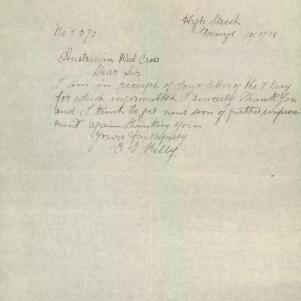 High Street
No 5370 Grange 10/5/18
Australian Red Cross
Dear Sir
I am in receipt of your letter of the 7 May
for which information I sincerely Thank You
and I trust to get news soon of further improve
ment again thanking you
Yours faithfully
E E Kelly